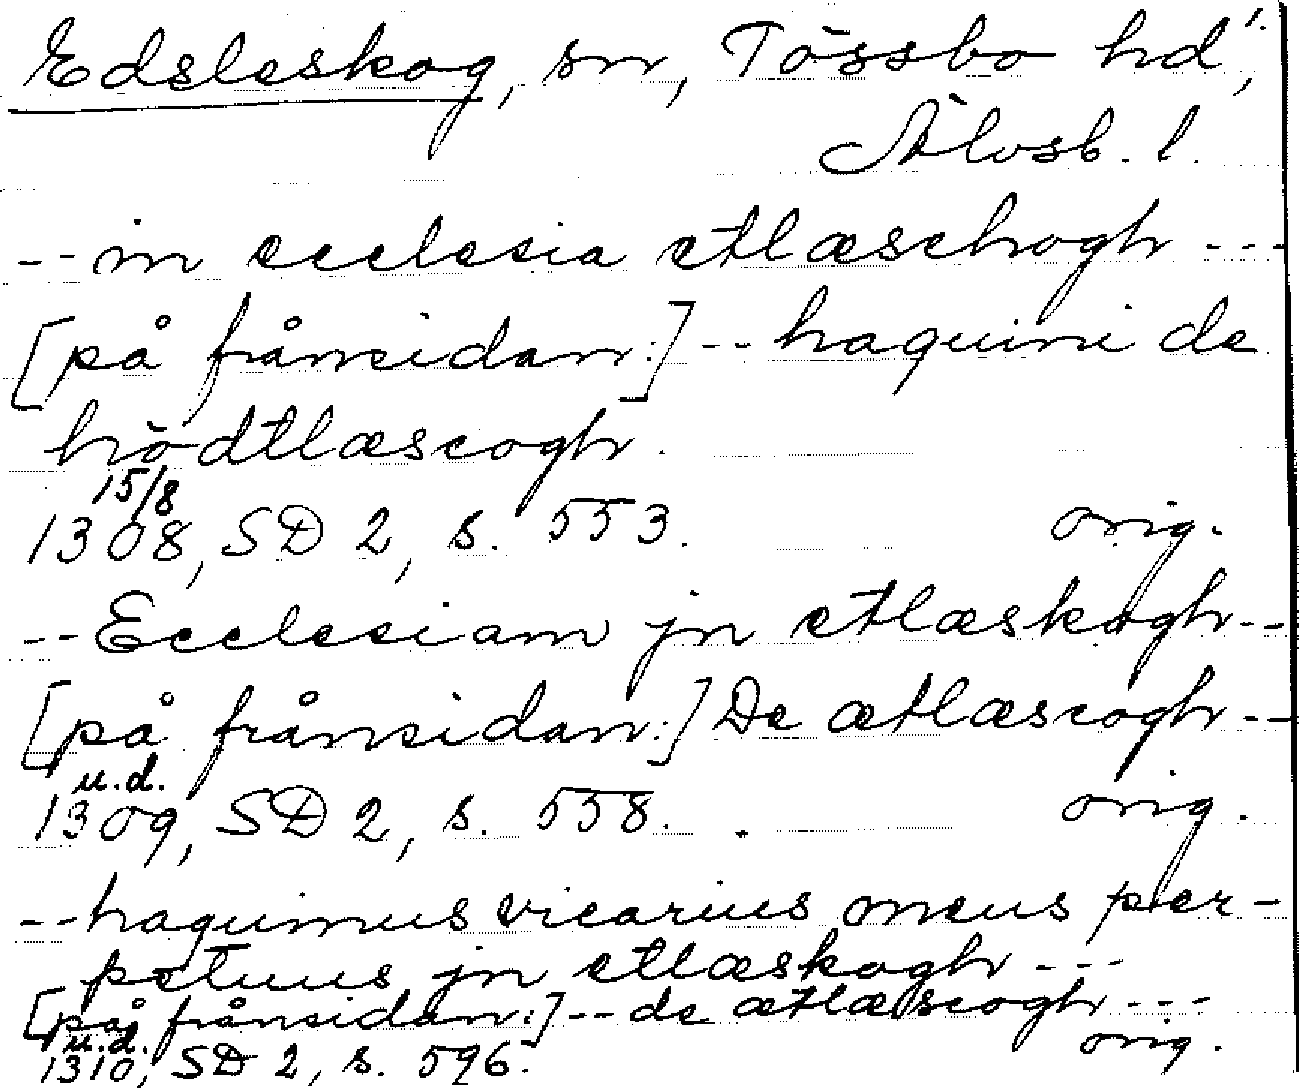 Edsleskog, sn, Tössbo hd,
Älvsb. l.
-- in ecclesia etlæschogh ---
[på frånsidan:] -- haquini de
hrödtlæscogh.
15/8
1308, SD 2, s. 553. orig.
-- Ecclesiam jn etlæskogh --
[på frånsidan:] De ætlæscogh --
u.d.
1309, SD 2, s. 558. orig.
-- haquinus vicarius meus per-
petuus jn etlæskogh ---
[på frånsidan:] -- de ætlæscogh ---
u.d.
1310, SD 2, s. 596. orig.